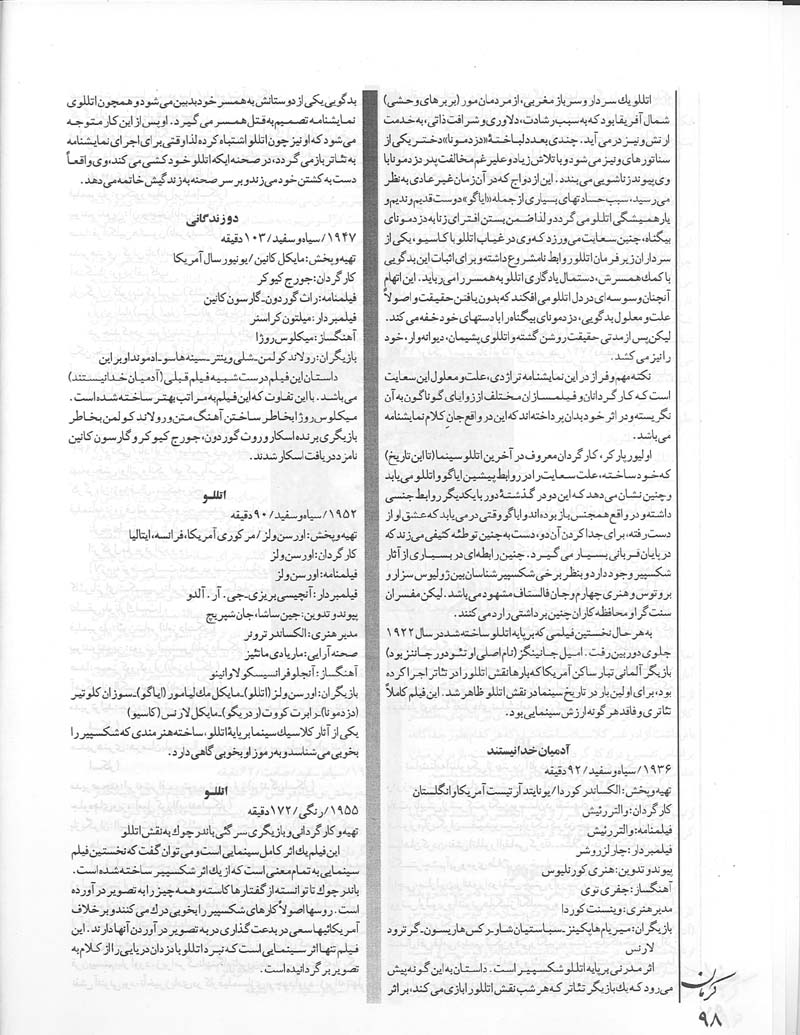 اتللو یك سردار و سرباز مغربی، از مردمان مور (بربرهای وحشی)
شمال آفریقا بود که به سبب رشادت، دلاوری و شرافت ذاتی، به خدمت
ارتش ونیز در می آید. چندی بعد دلباختهٔ «دزدمونا» دختر یکی از
سناتورهای ونیز می شود و با تلاش زیاد و علیرغم مخالفت پدر دزدمونا با
وی پیوند زناشویی می بندد. این ازدواج که در آن زمان غیرعادی به نظر
می رسید، سبب حسادتهای بسیاری از جمله «ایاگو» دوست قدیم و ندیم و
یار همیشگی اتللو می گردد و لذا ضمن بستن افترای زنا به دزدمونای
بیگناه، چنین سعایت می ورزد که وی در غیاب اتللو با کاسیو، یکی از
سرداران زیر فرمان اتللو روابط نامشروع داشته و برای اثبات این بدگویی
با کمك همسرش، دستمال یادگاری اتللو به همسر را می رباید. این اتهام
آنچنان وسوسه ای در دل اتللو می افکند که بدون یافتن حقیقت و اصولاً
علت و معلول بدگویی، دزدمونای بیگناه را با دستهای خود خفه می کند.
لیکن پس از مدتی حقیقت روشن گشته و اتللوی پشیمان، دیوانه وار، خود
را نیز می کشد.
نکته مهم و فراز در این نمایشنامه تراژدی، علت و معلول این سعایت
است که کارگردانان و فیلمسازان مختلف از زوایای گوناگون به آن
نگریسته و در اثر خود بدان پرداخته اند که این در واقع جان کلام نمایشنامه
می باشد.
اولیور پارکر، کارگردان معروف در آخرین اتللو سینما (تا این تاریخ)
که خود ساخته، علت سعایت را در روابط پیشین ایاگو و اتللو می یابد
و چنین نشان می دهد که این دو در گذشتهٔ دور با یکدیگر روابط جنسی
داشته و در واقع همجنس باز بوده اند و ایاگو وقتی در می یابد که عشق او از
دست رفته، برای جدا کردن آن دو، دست به چنین توطئه کثیفی می زند که
در پایان قربانی بسیار می گیرد. چنین رابطه ای در بسیاری از آثار
شکسپیر وجود دارد و بنظر برخی شکسپیر شناسان بین ژولیوس سزار و
بروتوس و هنری چهارم و جان فالستاف مشهود می باشد. لیکن مفسران
سنت گرا و محافظه کاران چنین برداشتی را رد می کنند.
به هر حال نخستین فیلمی که بر پایه اتللو ساخته شد در سال ۱۹۲۲
جلوی دوربین رفت. امیل جانینگز (نام اصلی او تئودور جاننز بود)
بازیگر آلمانی تبار ساکن آمریکا که بارها نقش اتللو را در تئاتر اجرا کرده
بود، برای اولین بار در تاریخ سینما در نقش اتللو ظاهر شد. این فیلم کاملاً
تئاتری و فاقد هرگونه ارزش سینمایی بود.
آدمیان خدا نیستند
۱۹۳۶/سیاه و سفید/۹۲ دقیقه
تهیه و پخش: الکساندر کوردا/یونایتد آرتیست آمریکا و انگلستان
کارگردان: والتر رئیش
فیلمنامه: والتر رئیش
فیلمبردار: چارلز روشر
پیوند و تدوین: هنری کورنلیوس
آهنگساز: جفری توی
مدیر هنری: وینسنت کوردا
بازیگران: میریام هاپکینز ـ سباستیان شاو ـ رکس هاریسون ـ گرترود
لارنس
اثر مدرنی بر پایه اتللو شکسپیر است. داستان به این گونه پیش
می رود که یك بازیگر تئاتر که هر شب نقش اتللو را بازی می کند، بر اثر
بدگویی یکی از دوستانش به همسر خود بدبین می شود و همچون اتللوی
نمایشنامه تصمیم به قتل همسر می گیرد. او پس از این کار متوجه
می شود که او نیز چون اتللو اشتباه کرده لذا وقتی برای اجرای نمایشنامه
به تئاتر باز می گردد، در صحنه ایکه اتللو خودکشی می کند، وی واقعاً
دست به کشتن خود می زند و بر سر صحنه به زندگیش خاتمه می دهد.
دو زندگانی
۱۹۴۷/سیاه و سفید/۱۰۳ دقیقه
تهیه و پخش: مایکل کانین/یونیورسال آمریکا
کارگردان: جورج کیوکر
فیلمنامه: راث گوردون ـ گارسون کانین
فیلمبردار: میلتون کراسنر
آهنگساز: میکلوس روژا
بازیگران: رولاند کولمن ـ شلی وینتر ـ سینه هاسو ـ ادموند اوبراین
داستان این فیلم درست شبیه فیلم قبلی (آدمیان خدا نیستند)
می باشد. با این تفاوت که این فیلم به مراتب بهتر ساخته شده است.
میکلوس روژا بخاطر ساختن آهنگ متن و رولاند کولمن بخاطر
بازیگری برنده اسکار و روث گوردون، جورج کیوکر و گارسون کانین
نامزد دریافت اسکار شدند.
اتللو
۱۹۵۲/سیاه و سفید/۹۰ دقیقه
تهیه و پخش: اورسن ولز/مرکوری آمریکا، فرانسه، ایتالیا
کارگردان: اورسن ولز
فیلمنامه: اورسن ولز
فیلمبردار: آنچیسی بریزی ـ جی. آر. آلدو
پیوند و تدوین: جین ساشا، جان شیریچ
مدیر هنری: الکساندر تروئر
صحنه آرایی: ماریا دی ماتئیز
آهنگساز: آنجلو فرانسیسکو لاوانینو
بازیگران: اورسن ولز (اتللو) ـ مایکل مك لیامور (ایاگو) ـ سوزان کلوتیر
(دزدمونا) ـ رابرت کووت (رودریگو) ـ مایکل لارنس (کاسیو)
یکی از آثار کلاسیك سینما بر پایهٔ اتللو، ساخته هنرمندی که شکسپیر را
بخوبی می شناسد و به رموز او بخوبی آگاهی دارد.
اتللو
۱۹۵۵/رنگی/۱۷۲ دقیقه
تهیه و کارگردانی و بازیگری سرگئی باندرچوك به نقش اتللو
این فیلم یك اثر کامل سینمایی است و می توان گفت که نخستین فیلم
سینمایی به تمام معنی است که از یك اثر شکسپیر ساخته شده است.
باندرچوك تا توانسته از گفتارها کاسته و همه چیز را به تصویر در آورده
است. روسها اصولاً کارهای شکسپیر را بخوبی درك می کنند و بر خلاف
آمریکائیها سعی در بدعت گذاری در به تصویر در آوردن آنها دارند. این
فیلم تنها اثر سینمایی است که نبرد اتللو با دزدان دریایی را از کلام به
تصویر برگردانیده است.
کرمان
۹۸